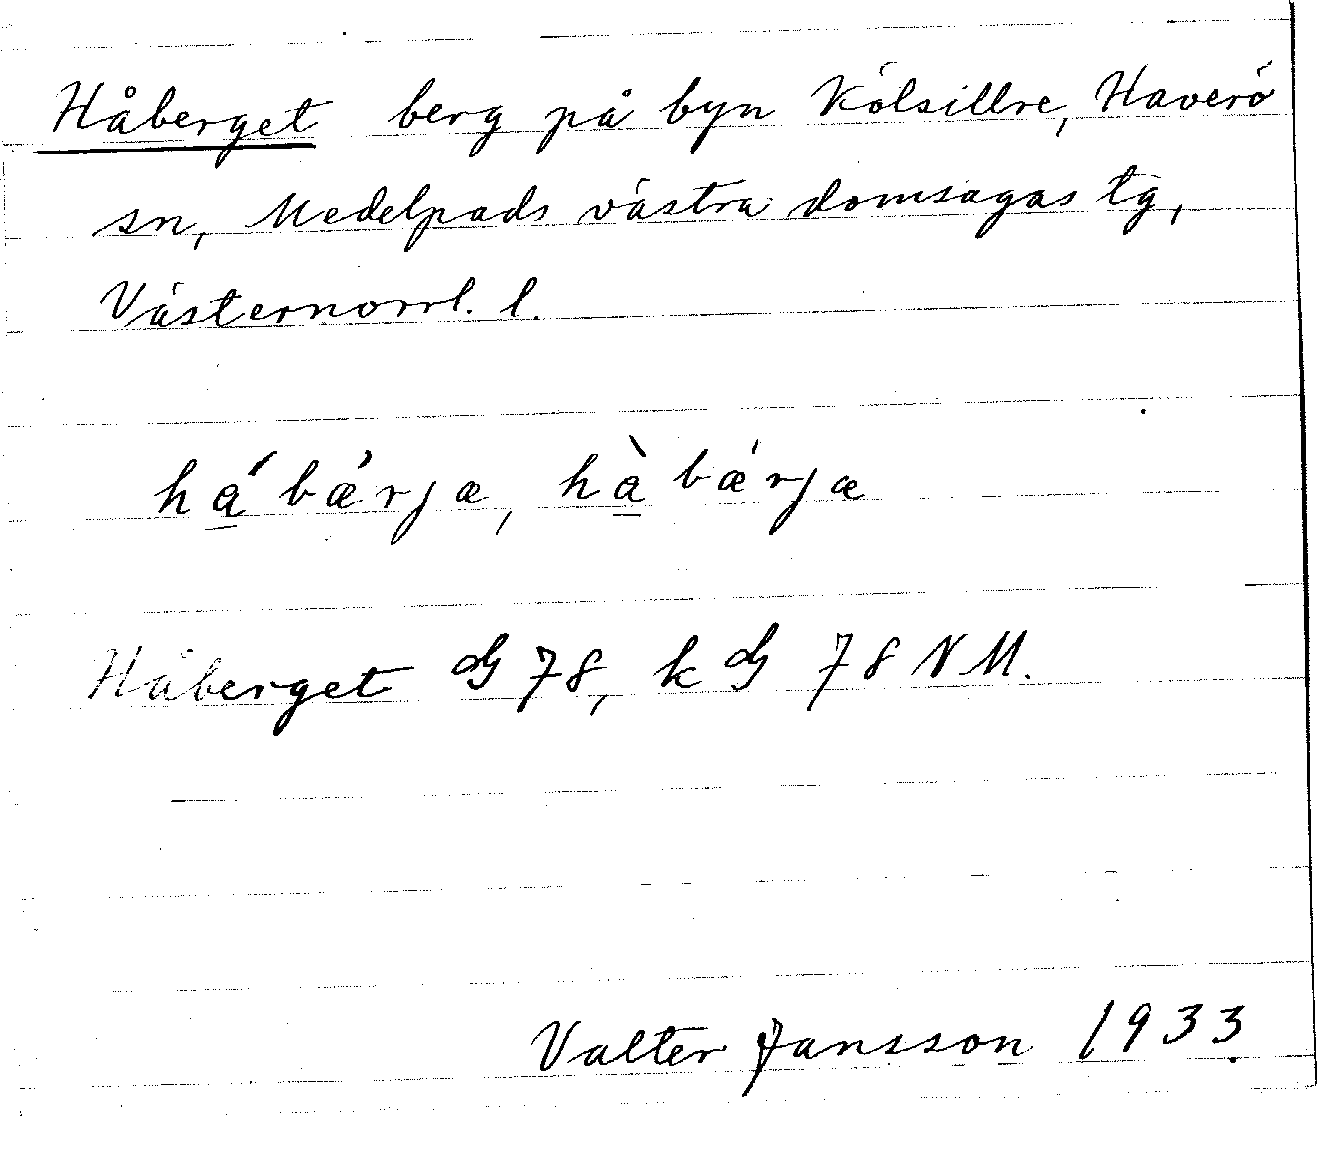 Håberget berg på byn Kölsillre, Haverö
sn, Medelpads västra domsagas tg,
Västernorrl. l.
há̱ bǽrjæ, hà̱ bǽrjæ
Håberget G 78, k G 78 NM.
Valter Jansson 1933.